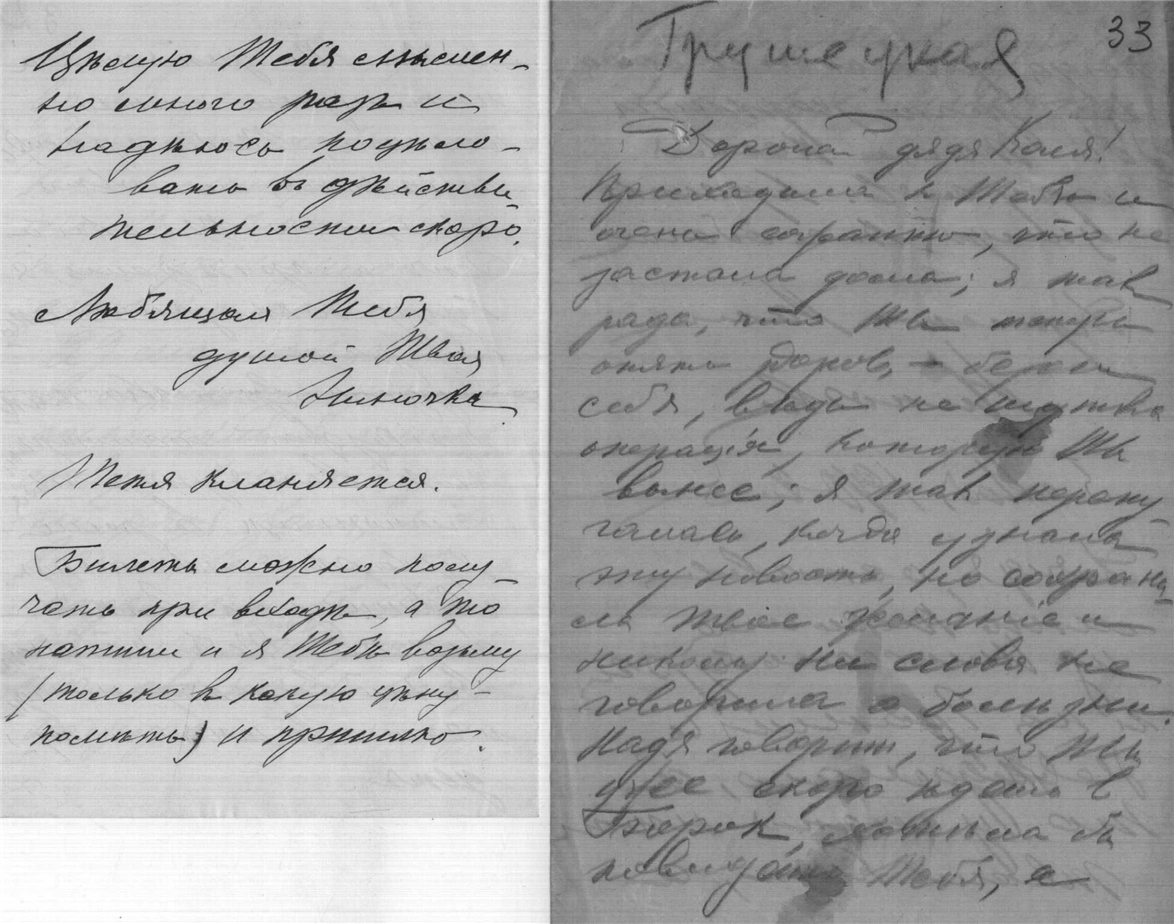 Цѣлую Тебя мысмен-
но много разъ и
надѣюсь поцѣло-
вать въ дѣйстви
тельности скоро.
Любящая Тебя
душой Твоя
Ниночка
Тетя кланяется.
Билеты можно полу
чать при входѣ, а то
напиши и я Тебѣ возьму
(только в какую цѣну-
помѣть) и пришлю.
Грушецкая
33
Дорогой дядя Коля!
Приходила к Тебѣ и
очень сожалѣю, что не
застала дома; я так
рада, что Ты теперь
опять здоров, - береги
себя, вѣдь не шутка
операція, которую Ты
вынес; я так перепу
галась, когда узнала
эту новость, но сохрани
ла твое желаніе и
никому ни слова не
говорила о болѣзни.
Надя говорит, что Ты
уже скоро ѣдешь в
Борок, хотѣла бы
повидать Тебя, а